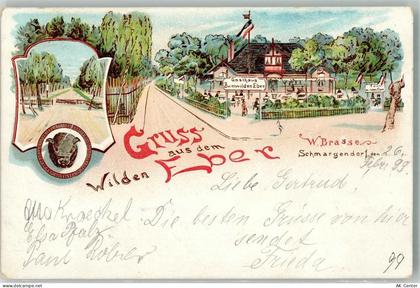 Gasthaus
Zum wilden Eber
Gruss
aus dem
Wilden Eber
W. Brasse
Schmargendorf, den 26.
Febr. 99.
Liebe Gertrud,
Die besten Grüsse von hier
sendet
Frieda
Otto Knoechel
Elsa Pfalz
Paul Röhrer
99
AK Center